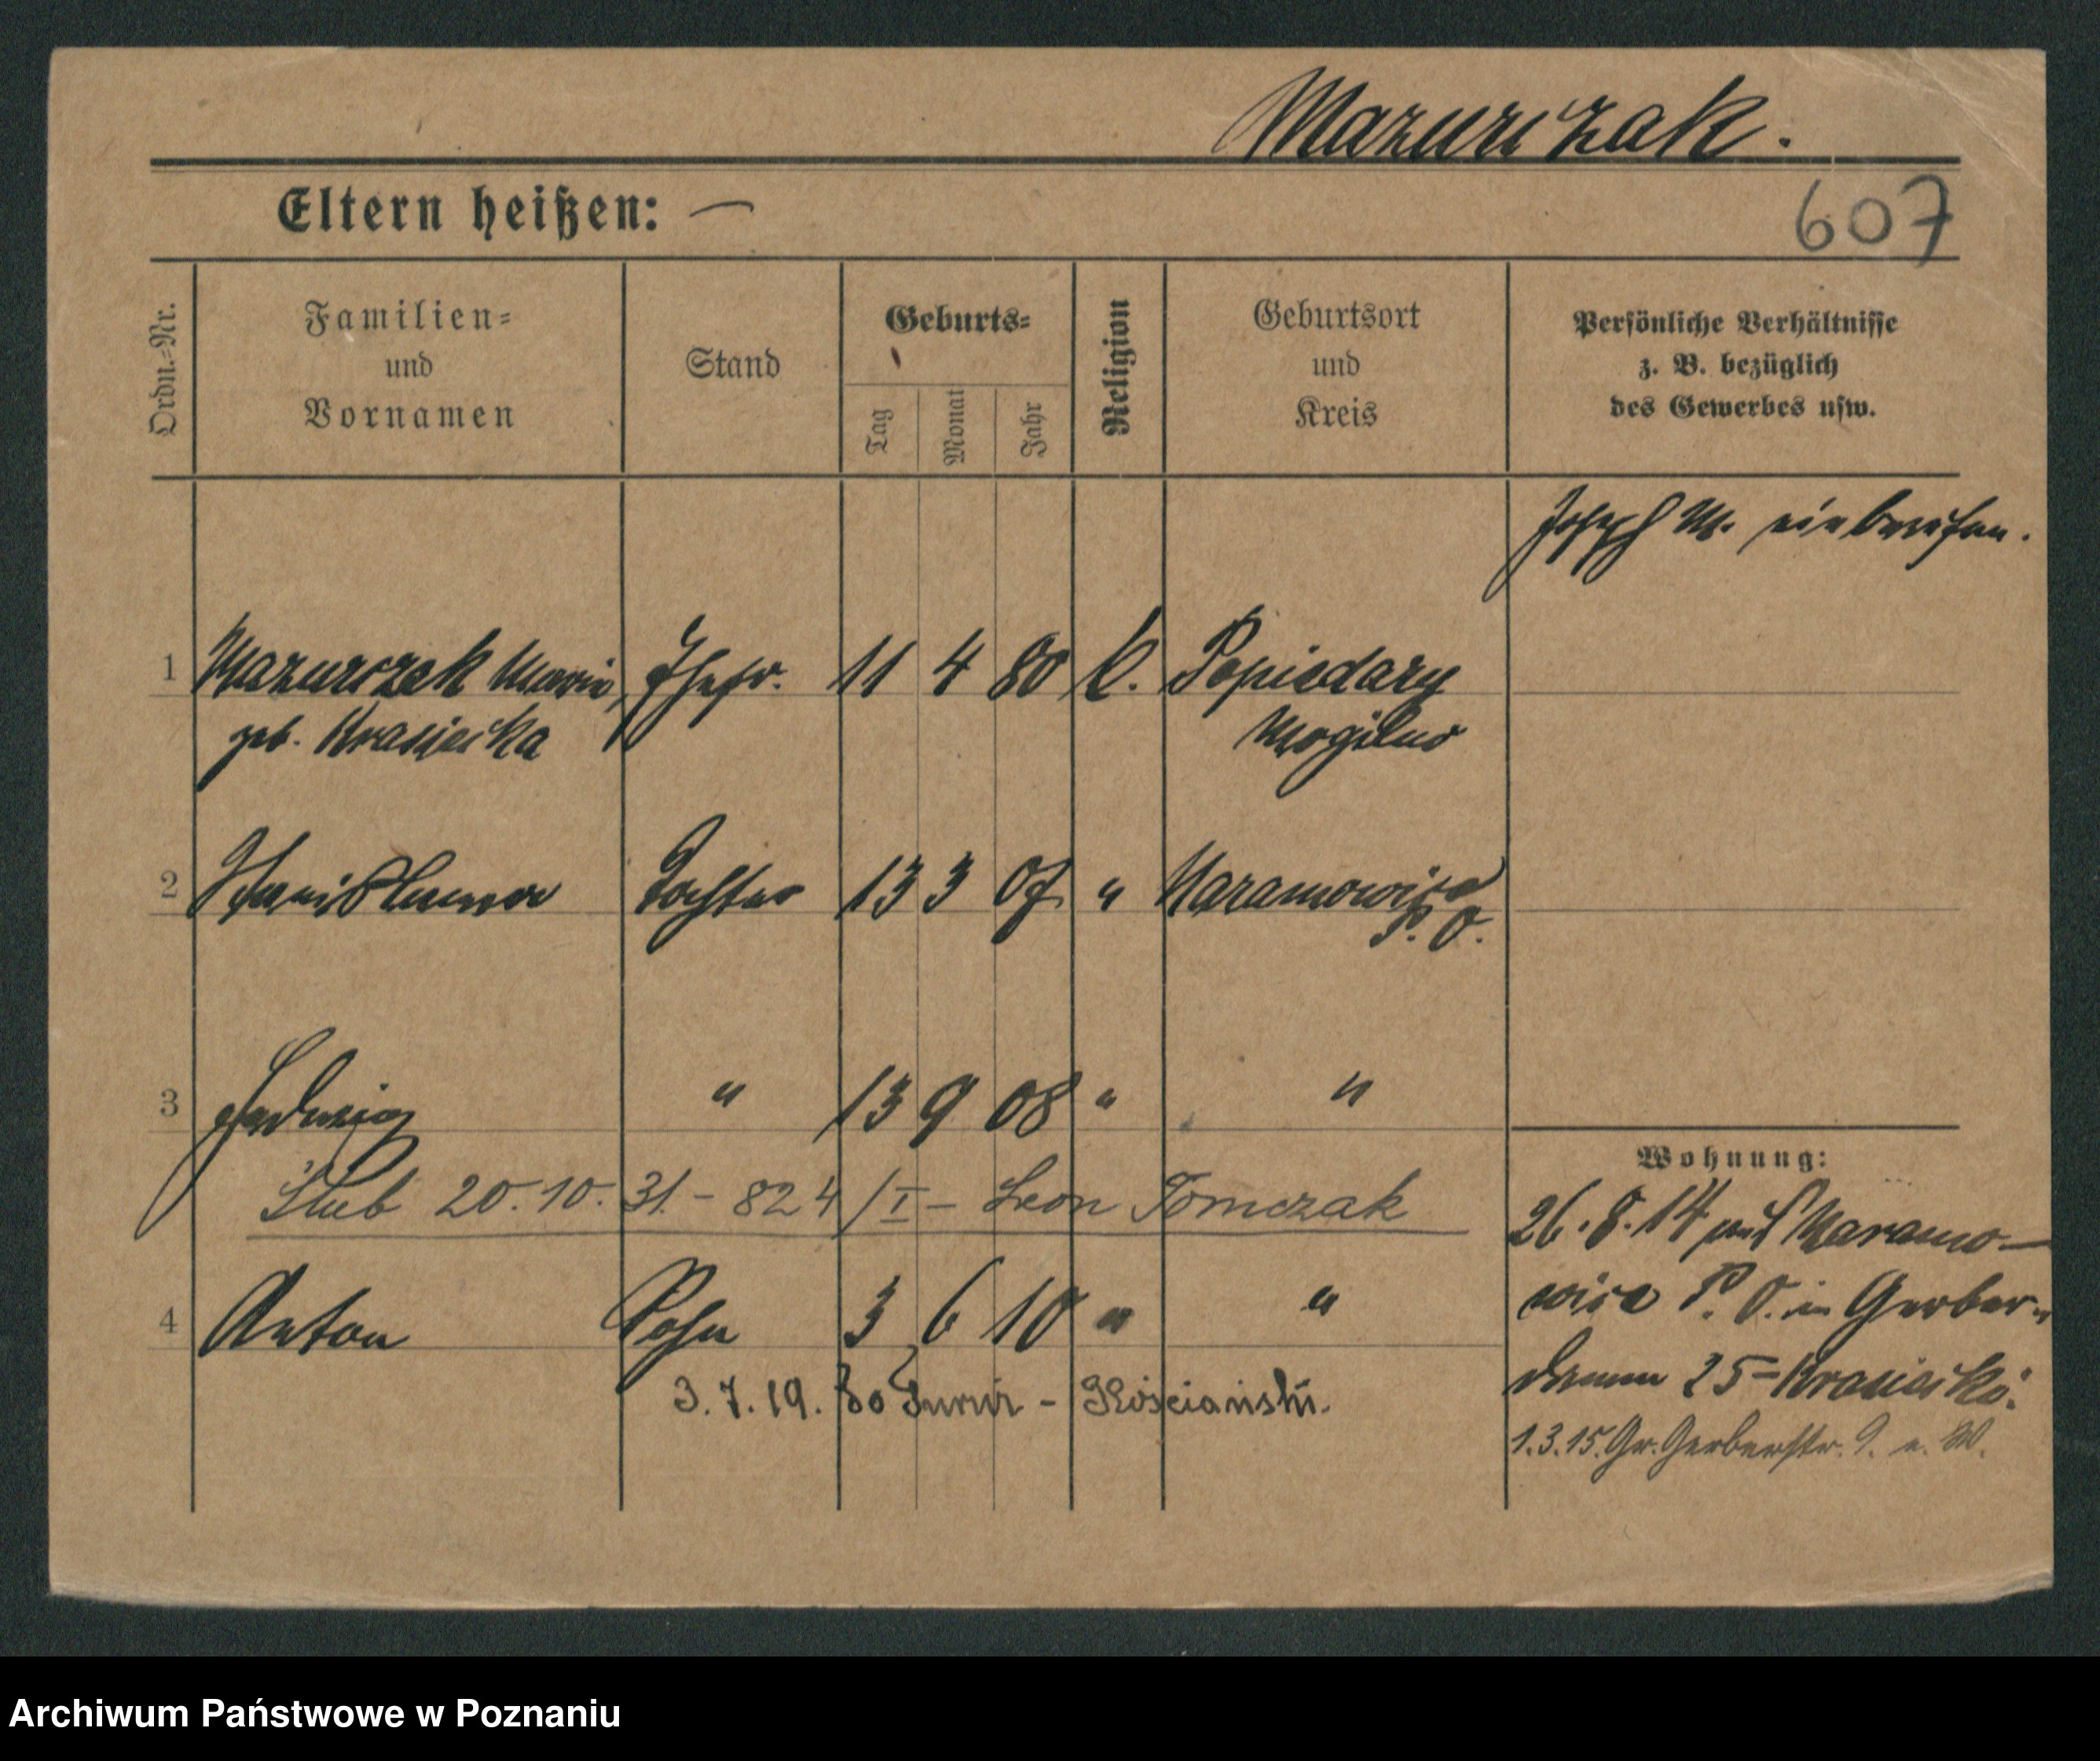 Mazurczak.
Eltern heißen: —
607
Ordn.-Nr.
Familien-
und
Vornamen
Stand
Geburts-
Tag
Monat
Jahr
Religion
Geburtsort
und
Kreis
Persönliche Verhältnisse
z. B. bezüglich
des Gewerbes usw.
Joseph M. einberufen.
1 Mazurczak Maria, Ehefr. 11 4 80 k. Popiedary
geb. Krasiecka Mogilno
2 Stanislawa Tochter 13 3 07 " Naramowice
P. O.
3 Hedwig " 13 9 08 " "
Ślub 20.10.31 - 824/I - Leon Tomczak
4 Anton Sohn 3 6 10 " "
3.7.19. do - Kościański.
Wohnung:
26.8.14 aus Naramo-
wice P. O. in Gerber-
damm 25 = Krasiecki.
1.3.15. Gr. Gerberstr. 9. e. W.
Archiwum Państwowe w Poznaniu